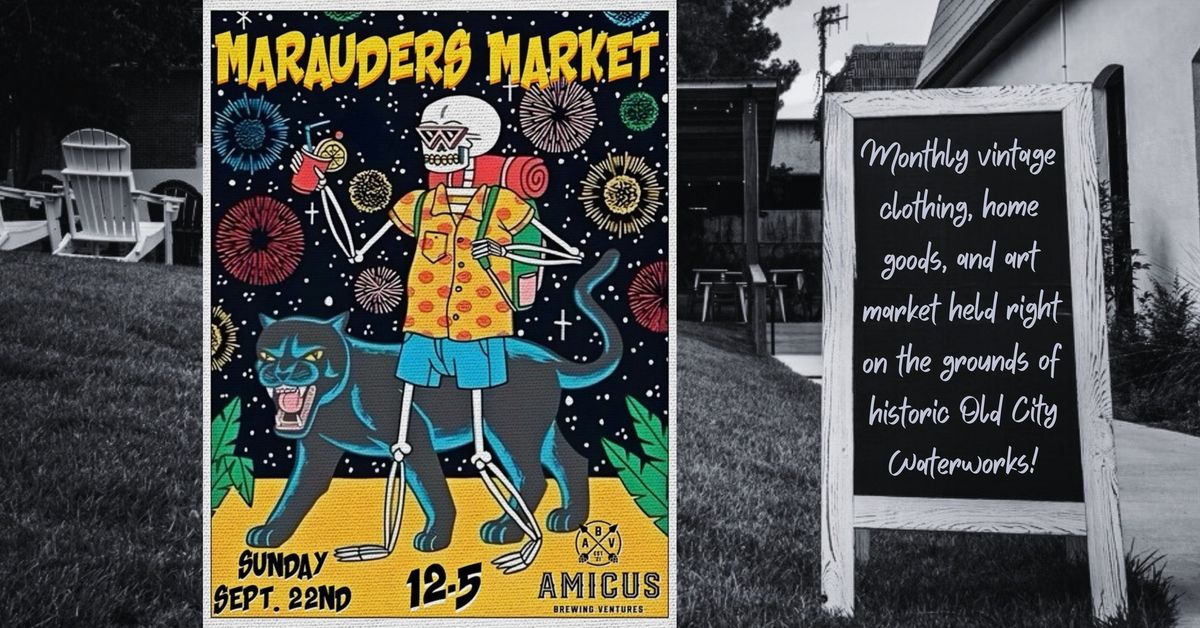 MARAUDERS MARKET
SUNDAY
SEPT. 22ND
12-5
A B V
EST
21
AMICUS
BREWING VENTURES
Monthly vintage
clothing, home
goods, and art
market held right
on the grounds of
historic Old City
Waterworks!